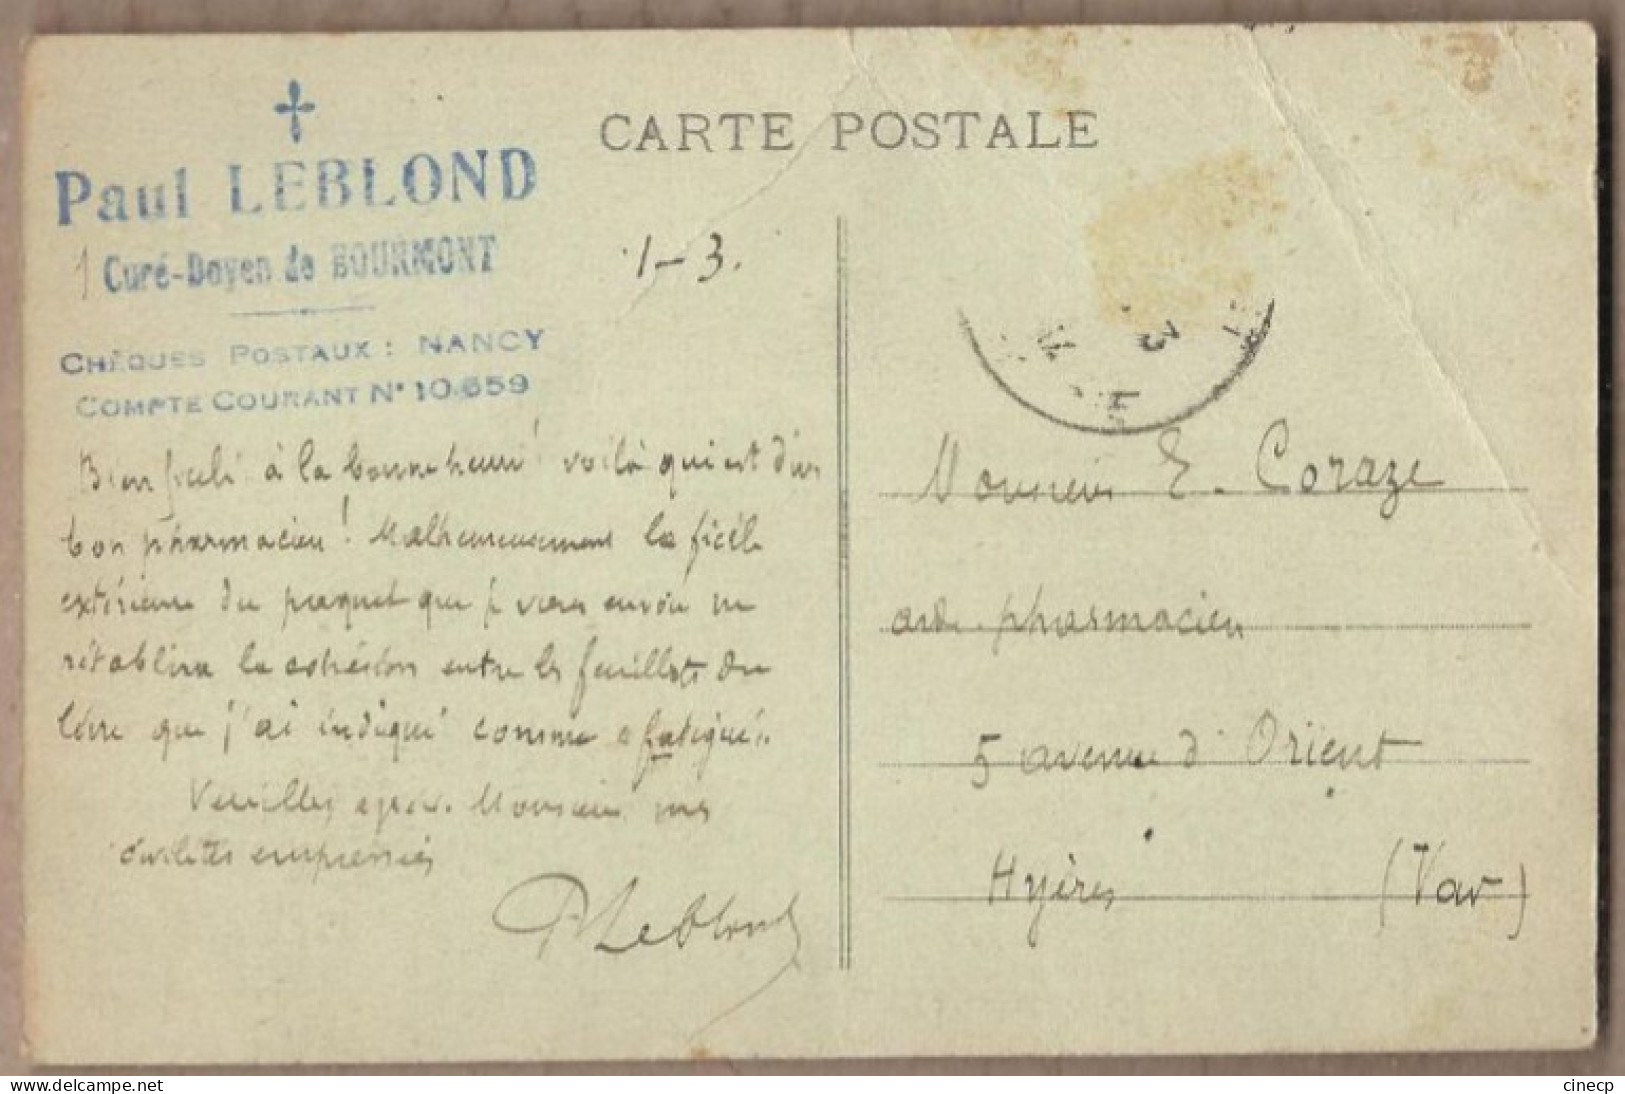 CARTE POSTALE
Paul LEBLOND
Curé-Doyen de BOURMONT
CHÈQUES POSTAUX : NANCY
COMPTE COURANT N° 10.659
1-3.
Bien ficelé à la bonne heure ! voilà qui est d'un
bon pharmacien ! Malheureusement la ficelle
extérieure du paquet que je viens envoi ne
rétablira la cohésion entre les feuillets du
livre que j'ai indiqué comme "fatigué".
Veuillez agréer Monsieur mes
civilités empressées
P Leblond
Monsieur E. Coraze
anc. pharmacien
5 avenue d'Orient
Hyères (Var)
delcampe.net
cinecp